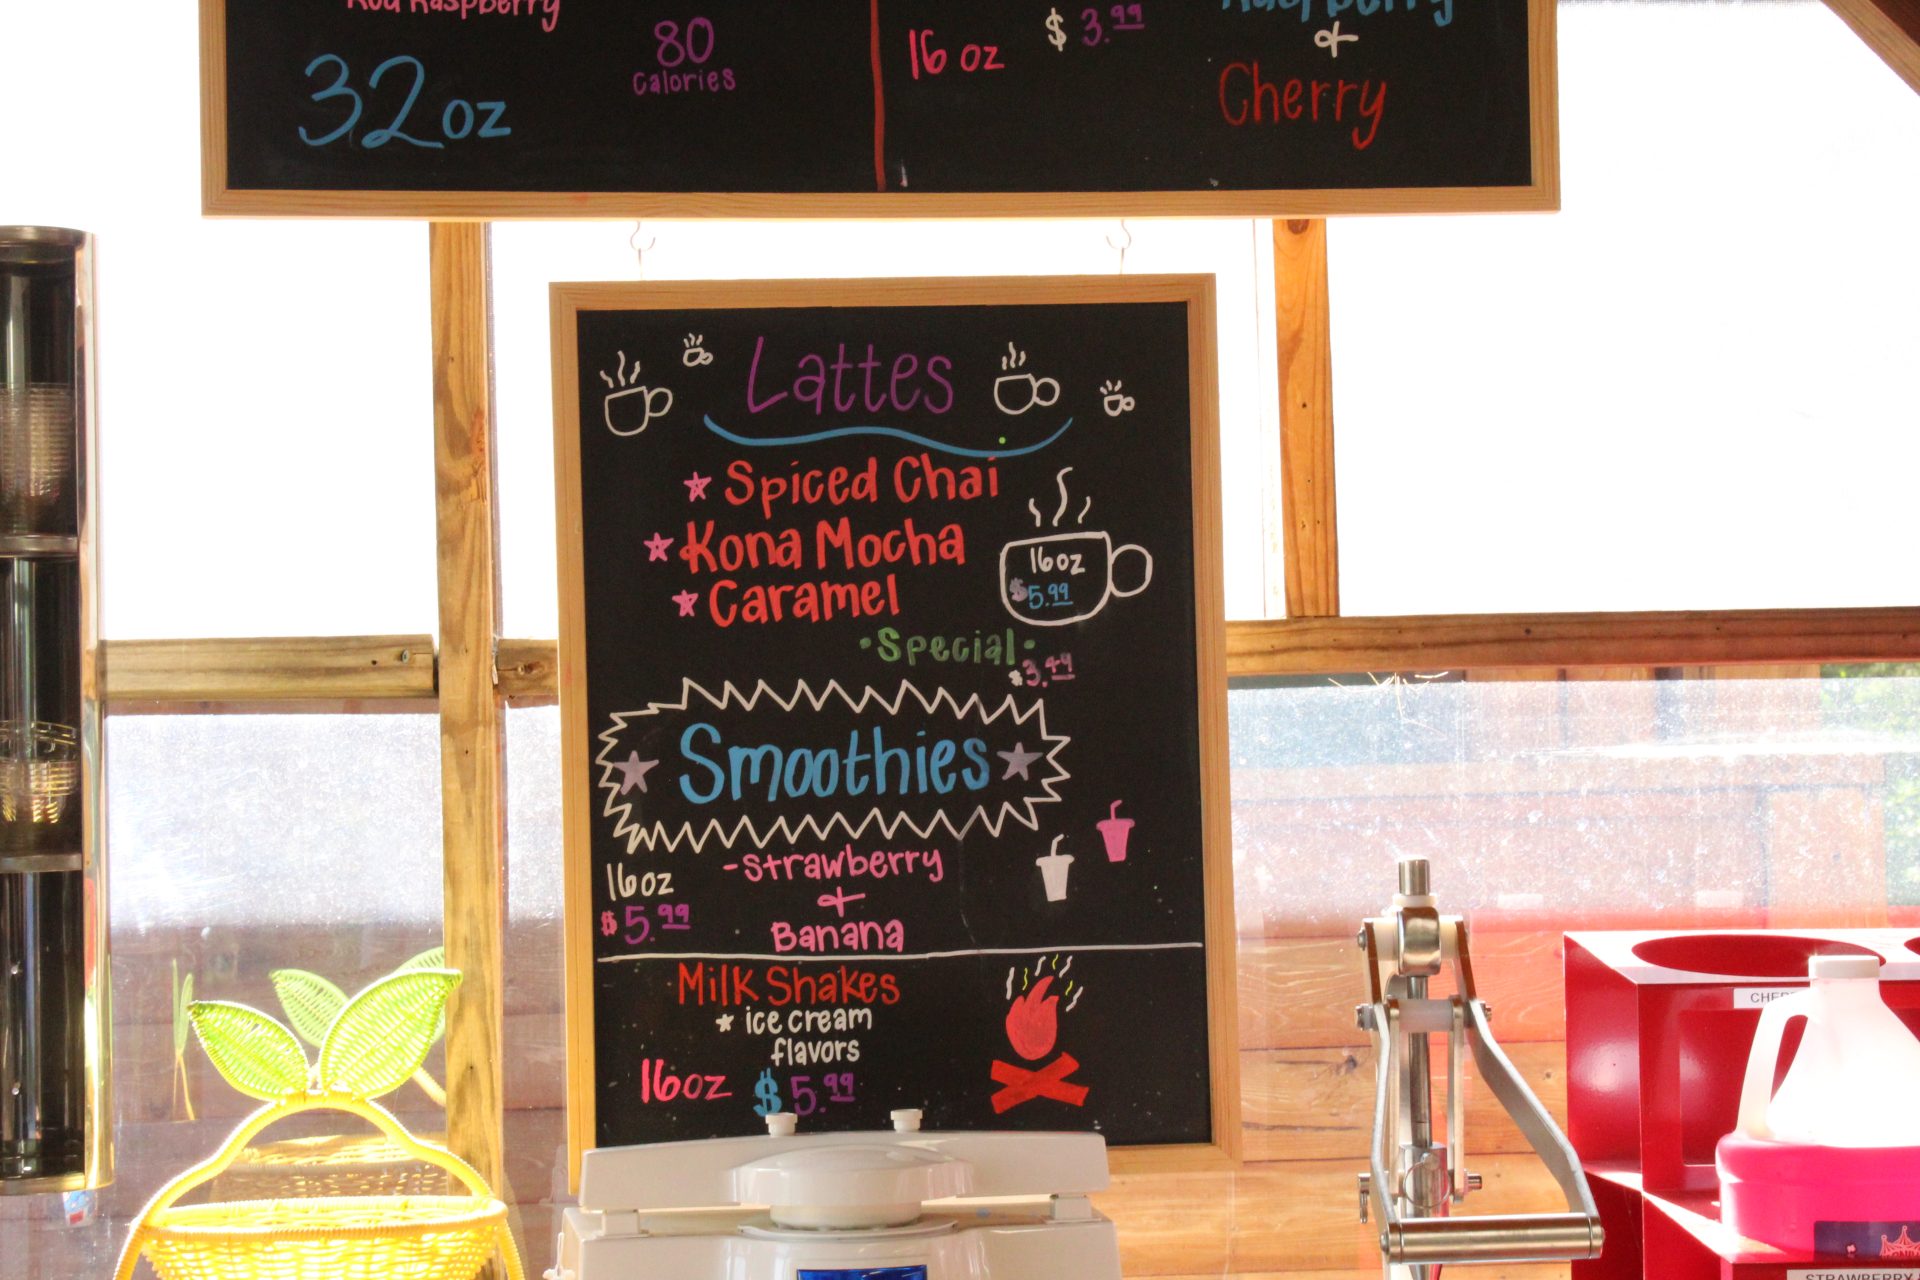 Red Raspberry
80
Calories
32 oz
16 oz
$ 3.99
Raspberry
&
Cherry
Lattes
Spiced Chai
Kona Mocha
Caramel
16 oz
$5.99
·Special·
$3.49
Smoothies
16 oz
$5.99
-Strawberry
&
Banana
Milk Shakes
* ice cream
flavors
16 oz $5.99
STRAWBERRY